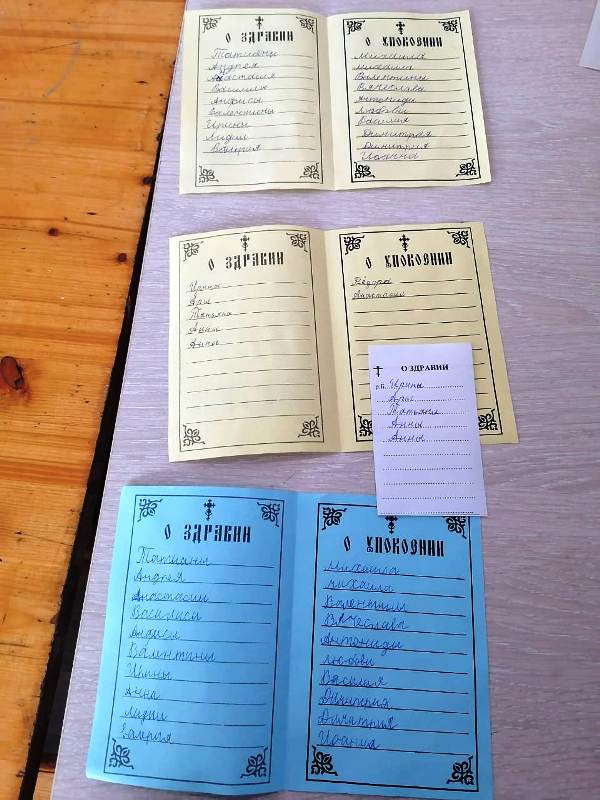 О ЗДРАВИИ
Татианы
Андрея
Анастасия
Василисы
Анфисы
Валентины
Ирины
Лидии
Валерия
О УПОКОЕНИИ
Михаила
михаила
Валентины
Вячеслава
Антониды
Любови
Василия
Димитрия
Димитрия
Иоанна
О ЗДРАВИИ
Ирины
Татьяна
Анны
Анны
О УПОКОЕНИИ
Фёдора
Анастасии
О ЗДРАВИИ
р.Б. Ирины
Татьяна
Анны
Анны
О ЗДРАВИИ
Татианы
Андрея
Анастасии
Василисы
Анфисы
Валентины
Ирины
Анна
Лидии
Валерия
О УПОКОЕНИИ
михаила
михаила
Валентины
Вячеслава
Антониды
любови
Василия
Димитрия
Димитрия
Иоанна